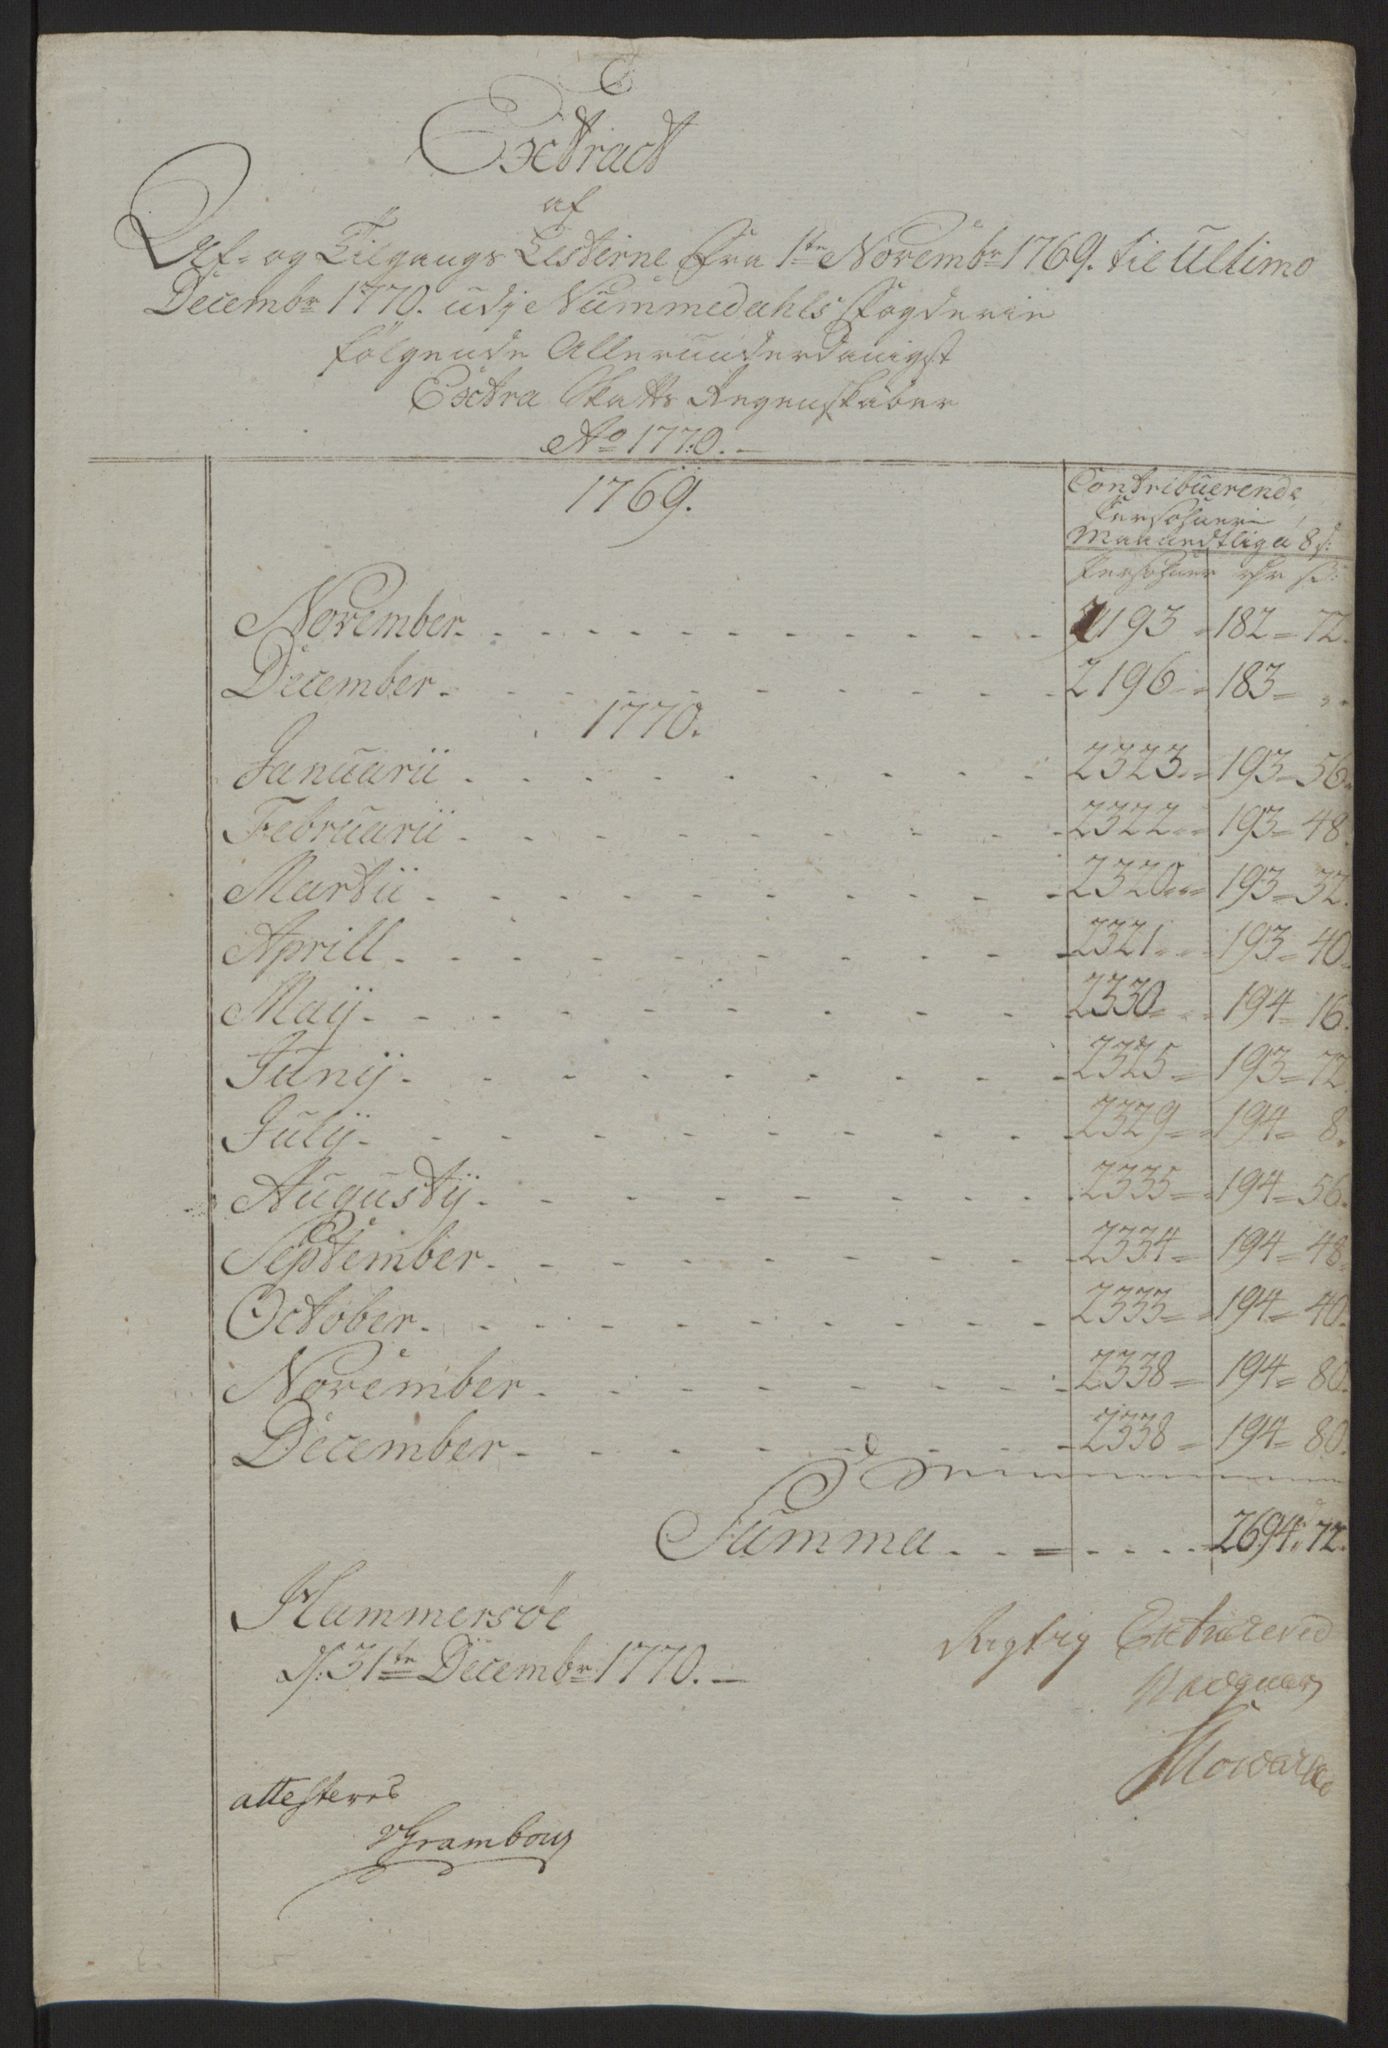 Extract
af
Af- og Tilgangs Listerne fra 1te Novembr 1769. til Ultimo
Decembr 1770. udj Nummedahls Fogderie
følgende Allerunderdanigst
Extra Skatts Regenskaber
Ao 1770.
1769.
Contribuerende
Persohner
Maanedtlig á 8 s:
Persohner rdr s:
November 2193 182 72.
December 2196 183 "
1770.
Januarii 2323 193 56.
Februarii 2322 193 48.
Martii 2320 193 32.
Aprill 2321 193 40.
Maij 2330 194 16.
Junij 2325 193 72.
Julij 2329 194 8.
Augustij 2335 194 56.
September 2334 194 48.
October 2333 194 40.
November 2338 194 80.
December 2338 194 80.
Summa 2694. 72.
Hammersøe
d. 31te Decembr 1770.
Rigtig Extrahered
attesteres